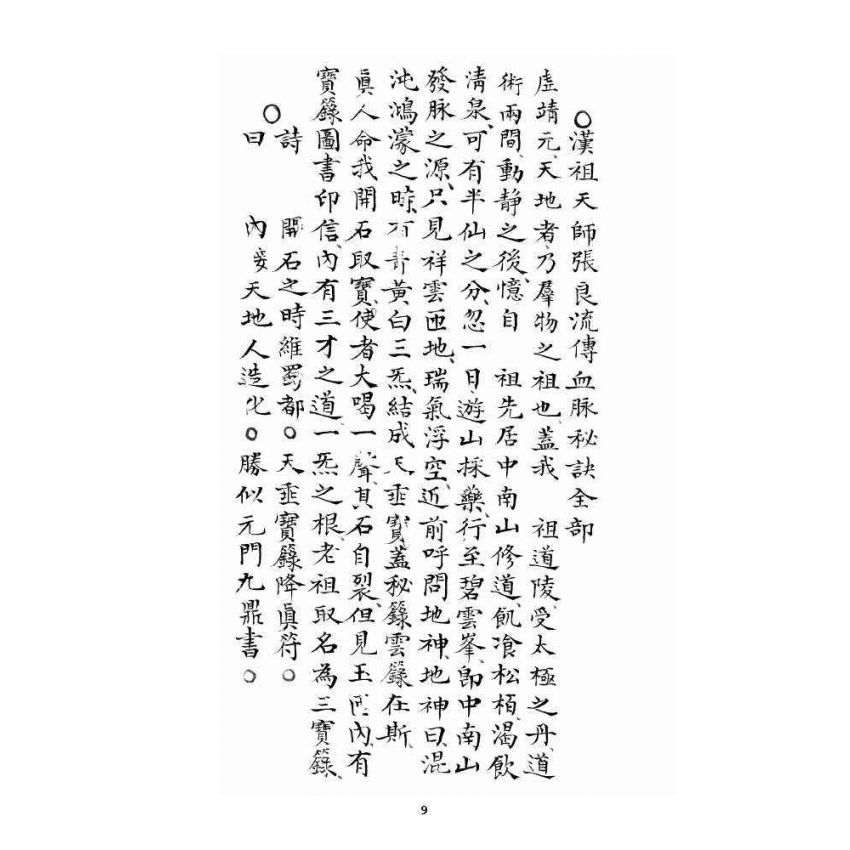 ○漢祖天師張良流傳血脉秘訣全部
虛靖元、天地者、乃羣物之祖也、蓋我　祖道陵、受太極之丹、道
術兩間、動靜之後、憶自　祖先居中南山修道、飢飡松栢、渴飲
清泉、可有半仙之分、忽一日、遊山採藥、行至碧雲峯、卽中南山
發脉之源、只見祥雲匝地、瑞氣浮空、近前呼問地神、地神曰、混
沌鴻濛之時、有青黃白三炁、結成天垂寶蓋秘籙雲籙在斯、
眞人命我開石取寶、使者大喝一聲、其石自裂、但見玉匣內、有
寶籙圖書印信、內有三才之道、一炁之根、老祖取名為三寶籙、
○詩曰
開石之時維蜀都○天垂寶籙降眞符○
內妥天地人造化○勝似元門九鼎書○
9